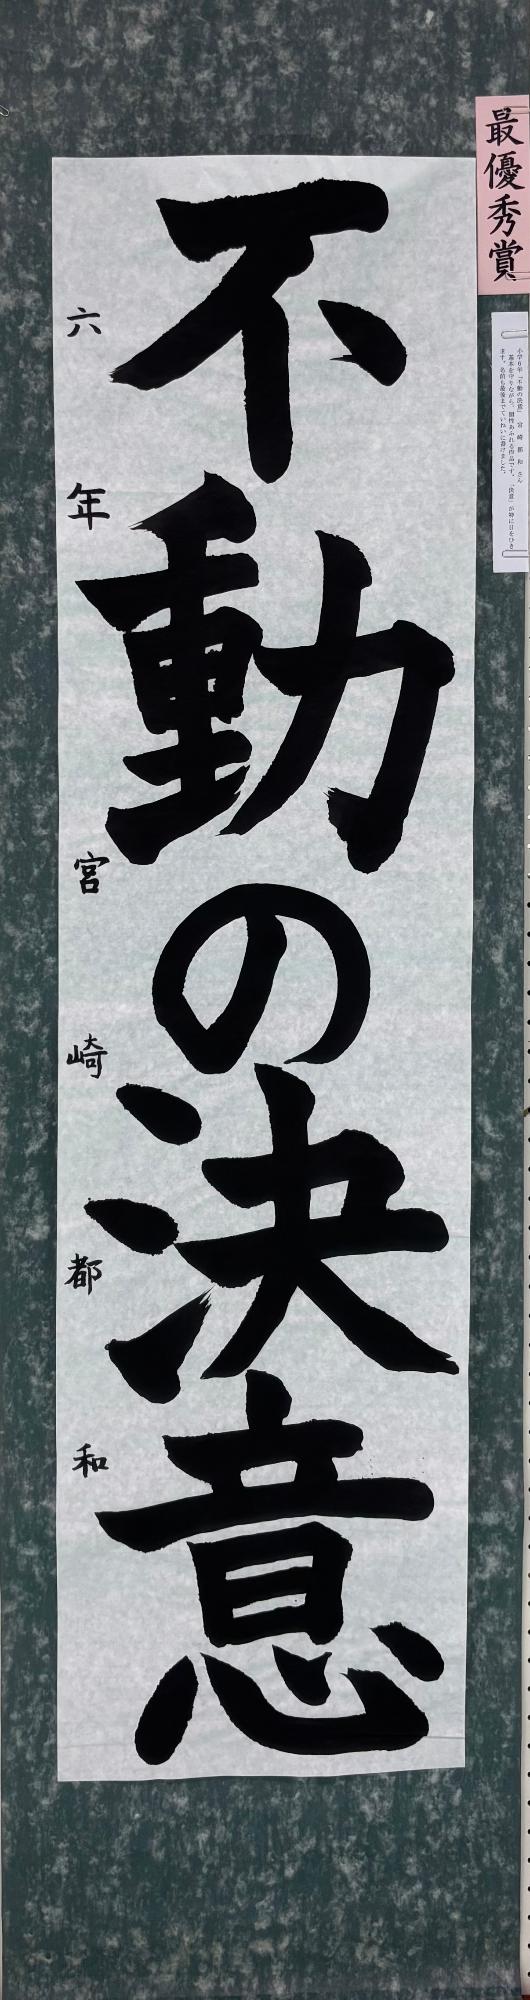 最優秀賞
小学6年「不動の決意」 宮崎都和さん
基本を守りながら、個性あふれる作品です。「決意」が特に目をひき
ます。名前も最後までていねいに書けました。
不動の決意
六年 宮崎都和